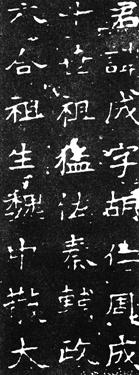 君成字胡仁周成
十世祖猛秦政
六合祖生魏中散大